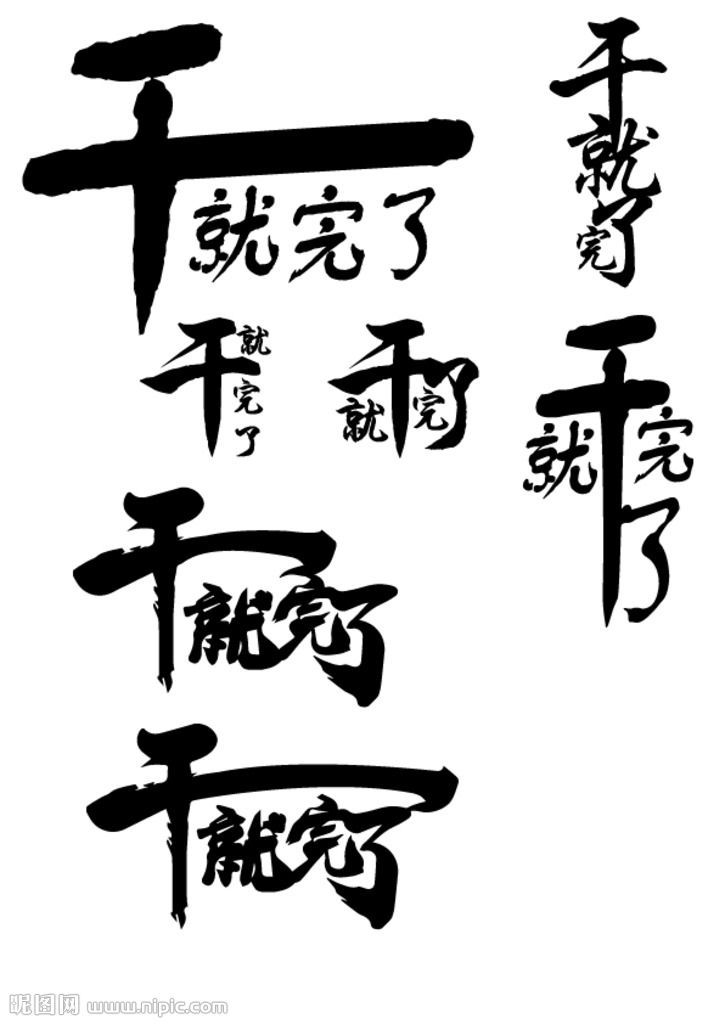 干就完了
干就完了
干就完了
干就完了
干就完了
干就完了
干就完了
昵图网 www.nipic.com